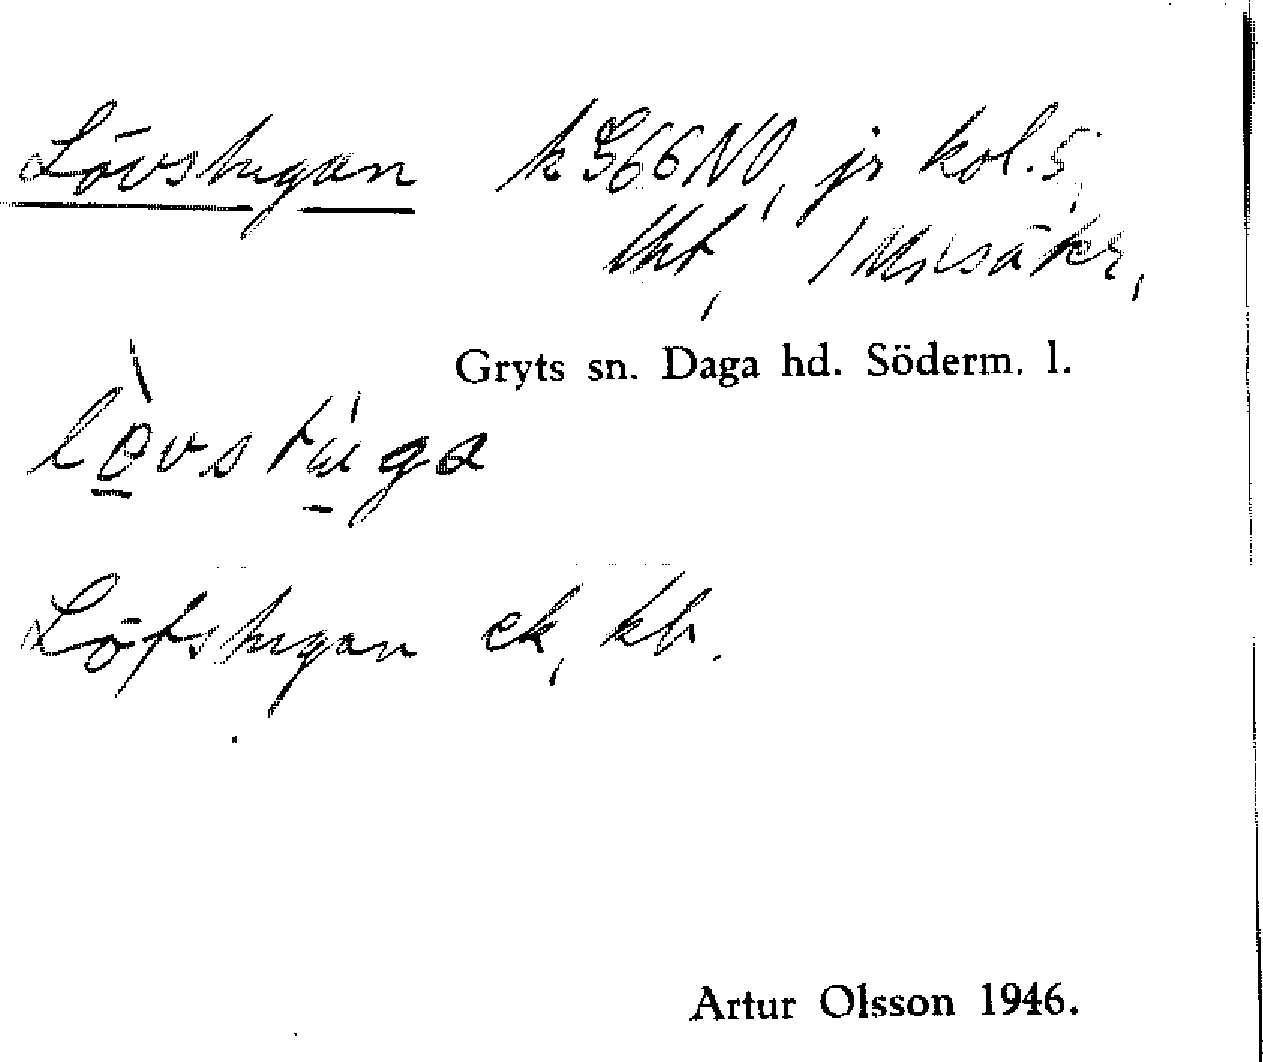 Lövstugan k 566 NO, jr kol. 5,
lht, /
Gryts sn. Daga hd. Söderm. l.
lòvstúga
Löfstugan ek, kb.
Artur Olsson 1946.